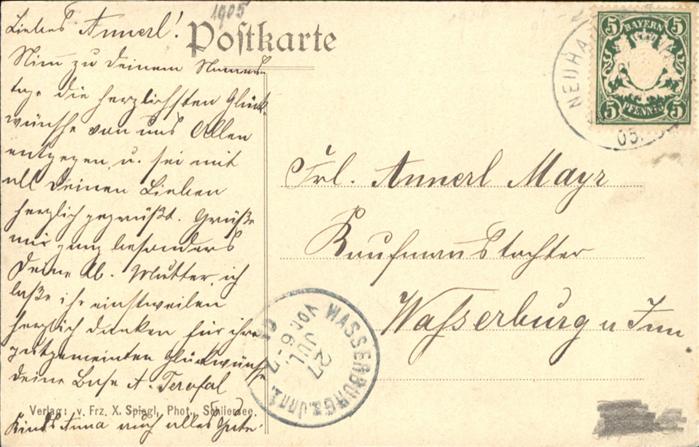 1905
Postkarte
Liebes Annerl!
Nim zu deinem Namens-
tage die herzlichsten Glück-
wünsche von uns Allen
entgegen u. sei mit
all deinen Lieben
herzlich gegrüßt. Grüße
mir ganz besonders
deine lb. Mutter, ich
laße ihr einstweilen
herzlich danken für ihre
gutgemeinten Glückwünsche
deine Base A. Terofal
Verlag: v. Frz. X. Spiegl, Phot., Schliersee.
Anna auch alles Gute.
NEUHA
05.
5 BAYERN 5
5 PFENNIG 5
Frl. Annerl Mayr
Kaufmannstochter
Wasserburg a Inn.
WASSERBURG a. Inn 1.
27
JUL
VOR. 6-7